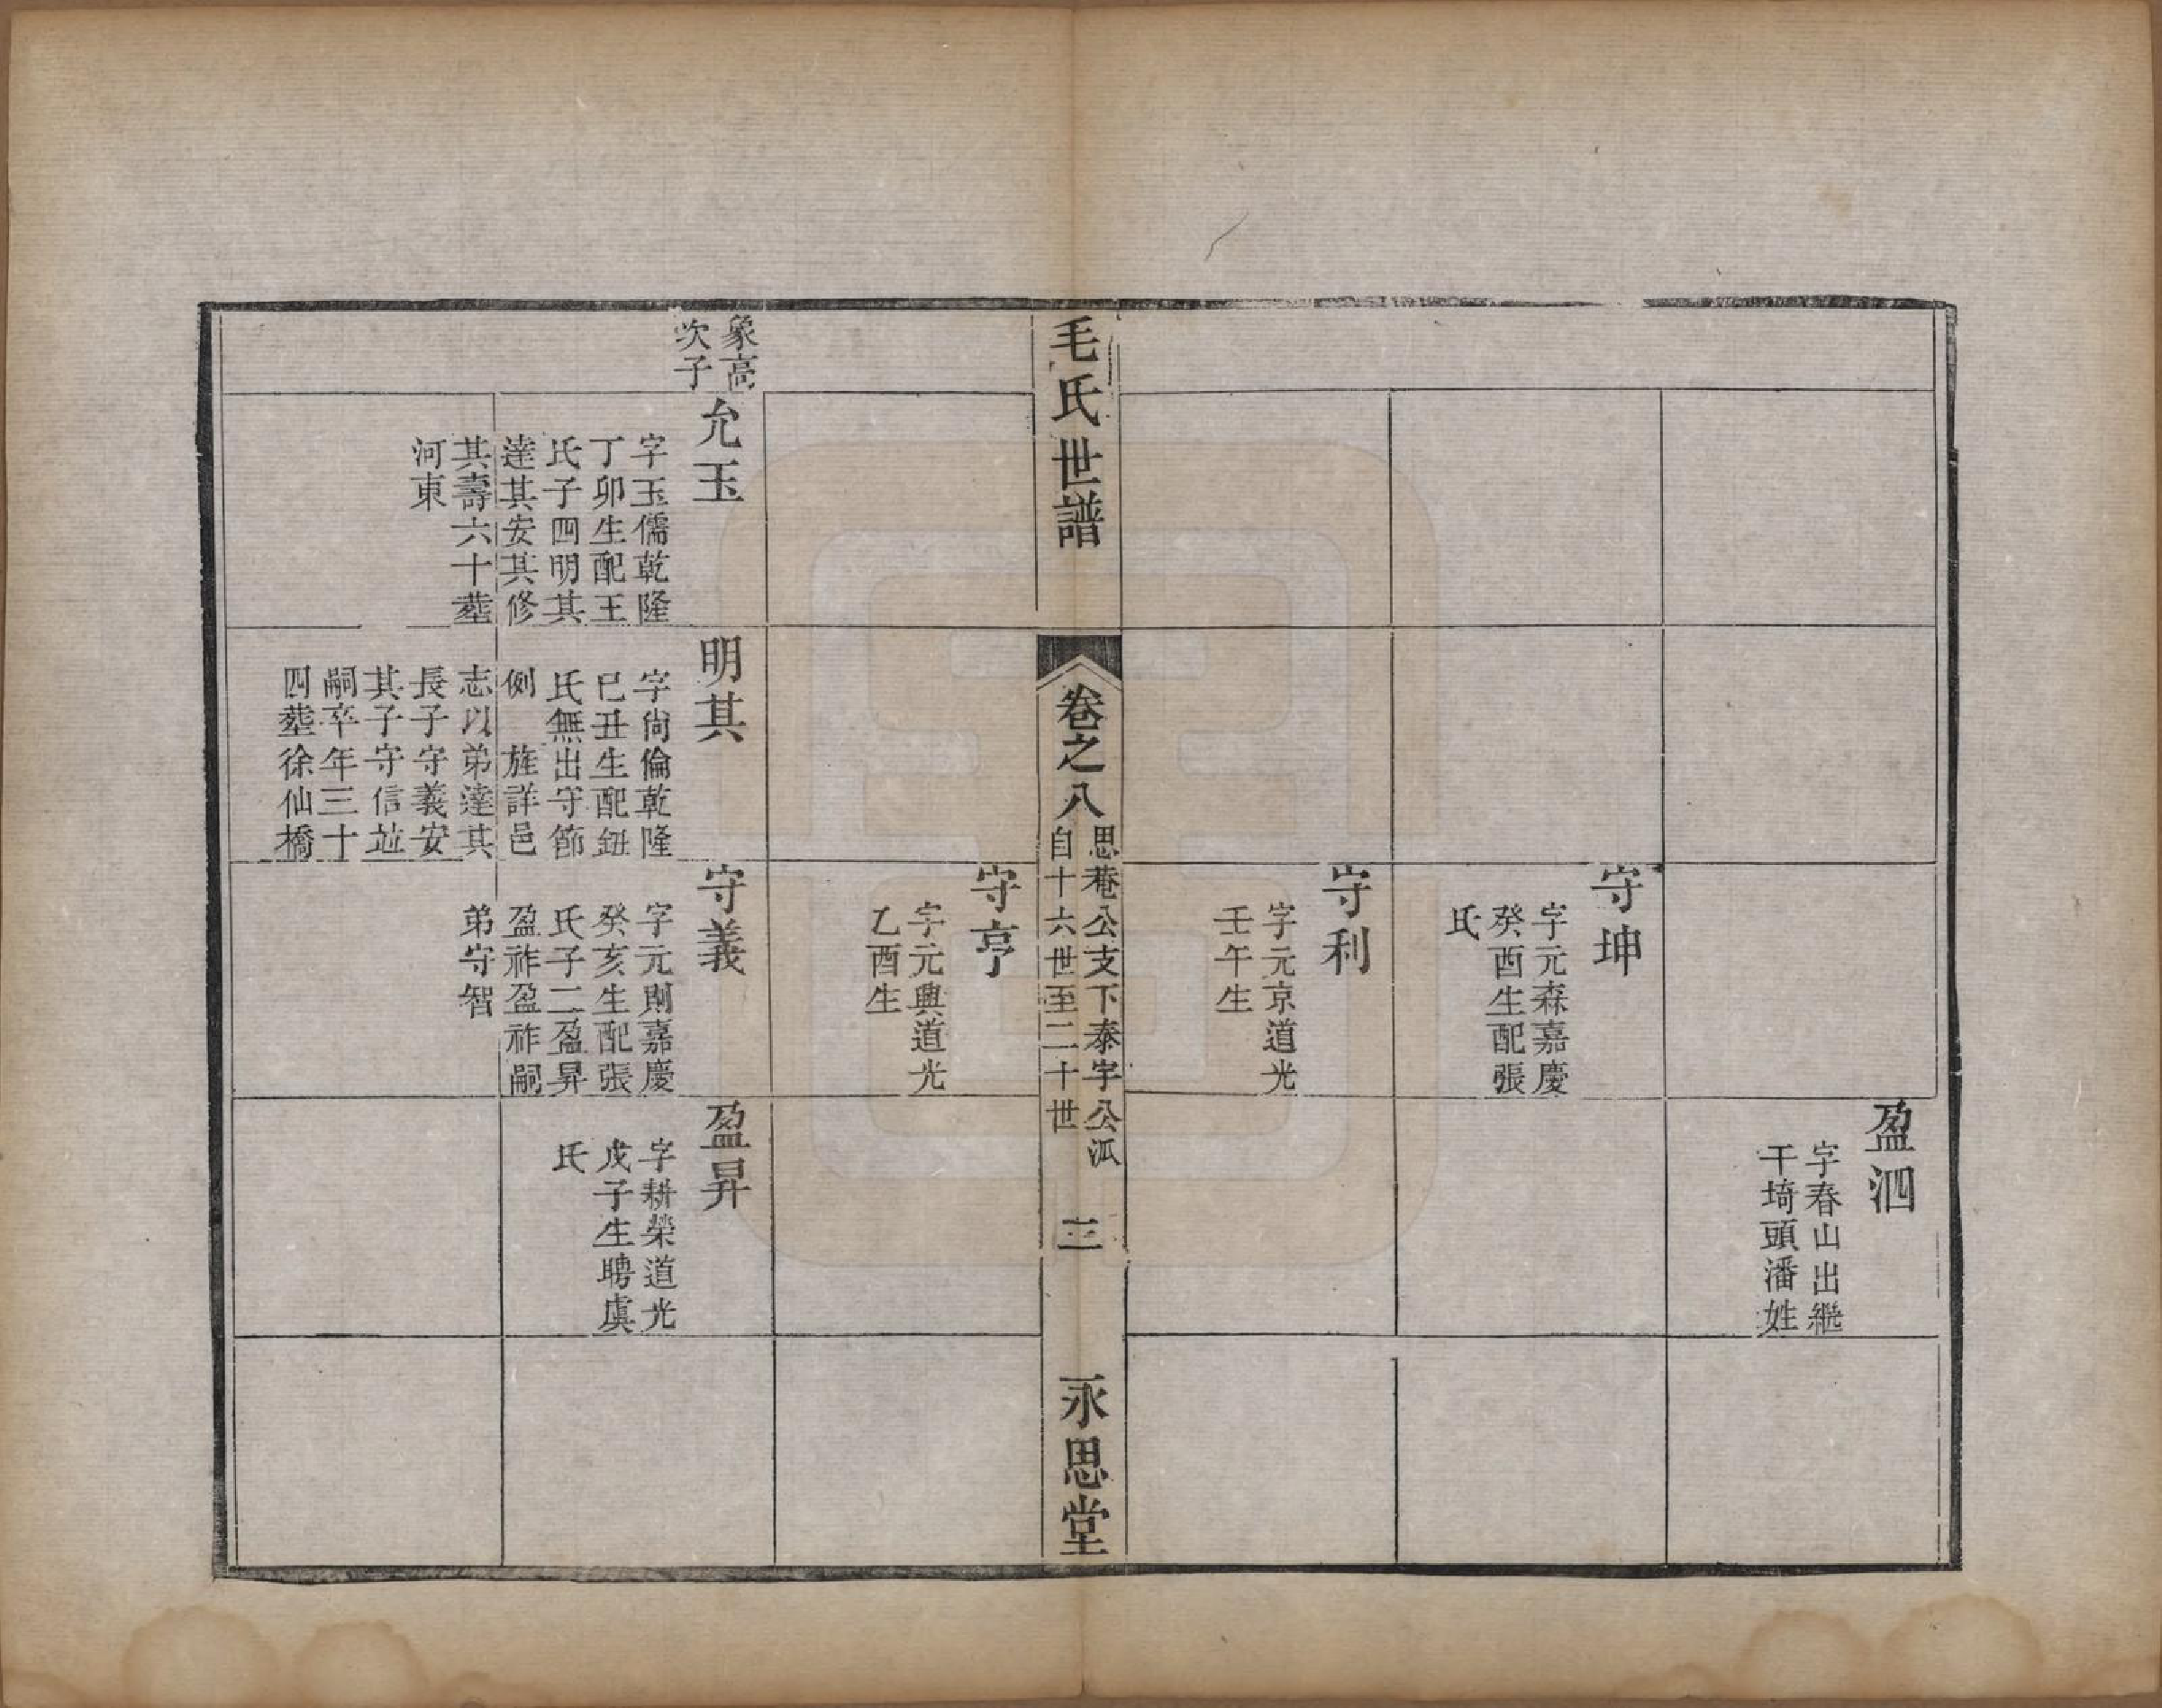 盈泗
字春山出繼
干埼頭潘姓
守坤
字元森嘉慶
癸酉生配張
氏
守利
字元京道光
壬午生
毛氏世譜
卷之八
思菴公支下泰宇公派
自十六世至二十世
三
永思堂
守亨
字元興道光
乙酉生
象高
次子
允玉
字玉儒乾隆
丁卯生配王
氏子四明其
達其安其修
其壽六十葬
河東
明其
字尙倫乾隆
巳丑生配鈕
氏無出守節
例　旌詳邑
志以弟達其
長子守義安
其子守信並
嗣卒年三十
四葬徐仙橋
守義
字元則嘉慶
癸亥生配張
氏子二盈昇
盈祚盈祚嗣
弟守智
盈昇
字耕榮道光
戊子生聘虞
氏